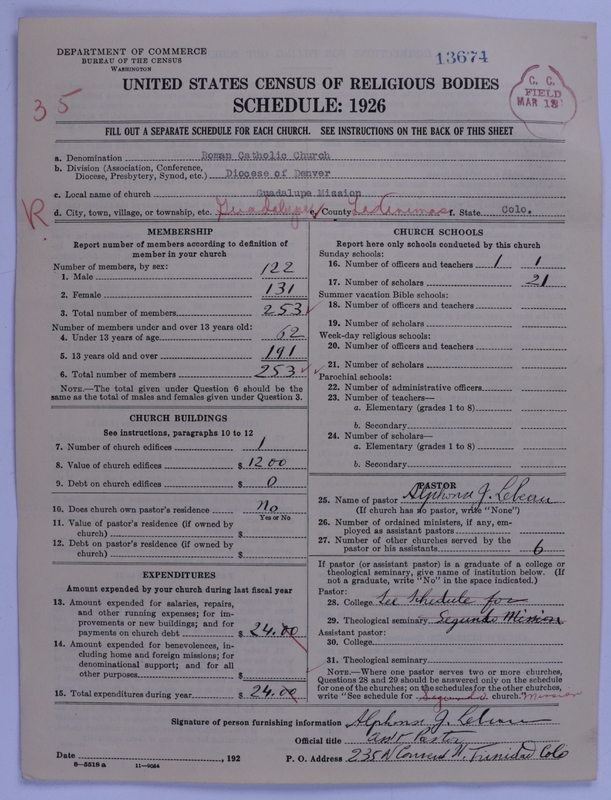 DEPARTMENT OF COMMERCE
BUREAU OF THE CENSUS
WASHINGTON
13674
C. C.
FIELD
MAR 18
35
UNITED STATES CENSUS OF RELIGIOUS BODIES
SCHEDULE: 1926
FILL OUT A SEPARATE SCHEDULE FOR EACH CHURCH. SEE INSTRUCTIONS ON THE BACK OF THIS SHEET
a. Denomination Roman Catholic Church
b. Division (Association, Conference,
Diocese, Presbytery, Synod, etc.) Diocese of Denver
c. Local name of church Guadalupe Mission
R
d. City, town, village, or township, etc. Guadalupe e. County Las Animas f. State Colo.
MEMBERSHIP
Report number of members according to definition of
member in your church
Number of members, by sex:
1. Male 122
2. Female 131
3. Total number of members 253
Number of members under and over 13 years old:
4. Under 13 years of age 62
5. 13 years old and over 191
6. Total number of members 253
NOTE.—The total given under Question 6 should be
same as the total of males and females given under Question 3.
CHURCH BUILDINGS
See instructions, paragraphs 10 to 12
7. Number of church edifices 1
8. Value of church edifices $ 1200
9. Debt on church edifices $ 0
10. Does church own pastor's residence No
Yes or No
11. Value of pastor's residence (if owned by
church) $
12. Debt on pastor's residence (if owned by
church) $
EXPENDITURES
Amount expended by your church during last fiscal year
13. Amount expended for salaries, repairs,
and other running expenses; for im-
provements or new buildings; and for
payments on church debt $ 24.00
14. Amount expended for benevolences, in-
cluding home and foreign missions; for
denominational support; and for all
other purposes $
15. Total expenditures during year $ 24.00
CHURCH SCHOOLS
Report here only schools conducted by this church
Sunday schools:
16. Number of officers and teachers 1 1
17. Number of scholars 21
Summer vacation Bible schools:
18. Number of officers and teachers
19. Number of scholars
Week-day religious schools:
20. Number of officers and teachers
21. Number of scholars
Parochial schools:
22. Number of administrative officers
23. Number of teachers—
a. Elementary (grades 1 to 8)
b. Secondary
24. Number of scholars—
a. Elementary (grades 1 to 8)
b. Secondary
PASTOR
25. Name of pastor Alphonse J. Lebeau
(If church has no pastor, write "None")
26. Number of ordained ministers, if any, em-
ployed as assistant pastors
27. Number of other churches served by the
pastor or his assistants 6
If pastor (or assistant pastor) is a graduate of a college or
theological seminary, give name of institution below. (If
not a graduate, write "No" in the space indicated.)
Pastor:
28. College See Schedule for
29. Theological seminary Segundo Mission
Assistant pastor:
30. College
31. Theological seminary
NOTE.—Where one pastor serves two or more churches,
Questions 28 and 29 should be answered only on the schedule
for one of the churches; on the schedules for the other churches,
write "See schedule for Segundo church." Mission
Signature of person furnishing information Alphonse J. Lebeau
Official title asst Pastor
Date , 192 P. O. Address 235 N Convent St. Trinidad Colo
8—5518 a 11—9024